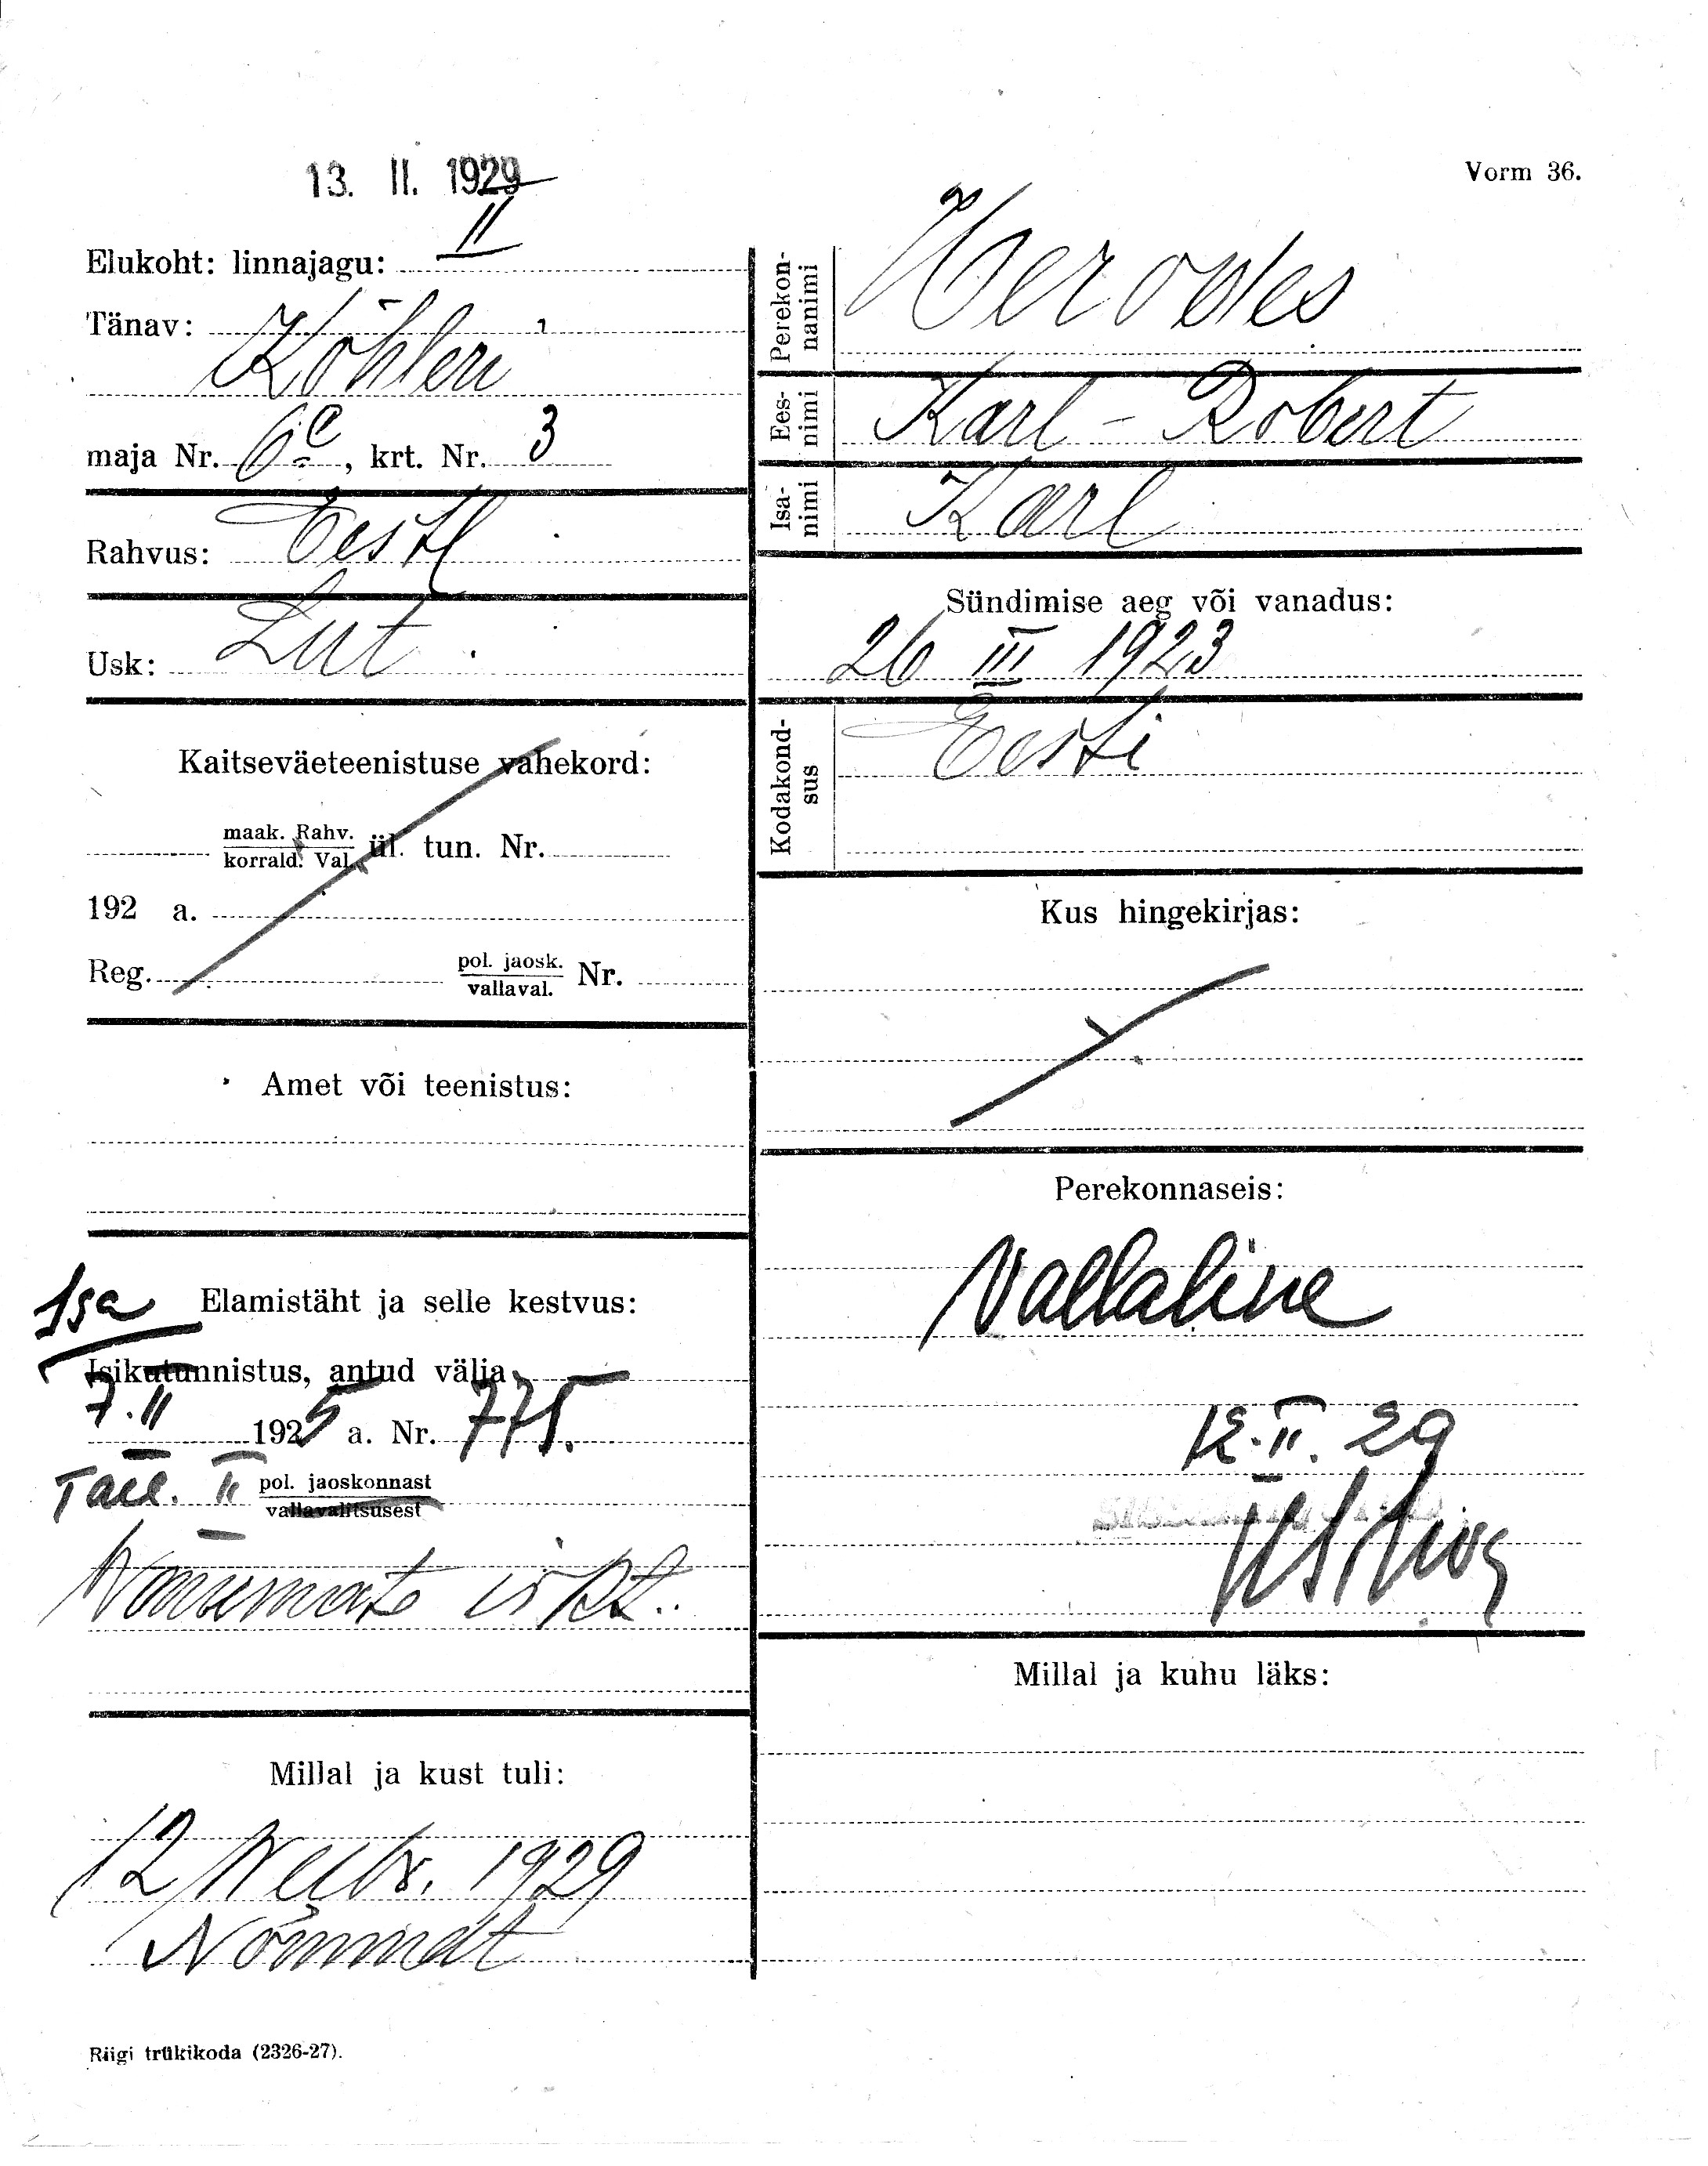 13. II. 1929
Vorm 36.
Elukoht: linnajagu: II
Tänav:
Köhleri
maja Nr. 6c, krt. Nr. 3
Rahvus: Eestl
Usk: Lut.
Kaitseväeteenistuse vahekord:
maak. Rahv.
korrald. Val. ül. tun. Nr.
192 a.
Reg. pol. jaosk. Nr.
vallaval.
Amet või teenistus:
Isa Elamistäht ja selle kestvus:
Isikutunnistus, antud välja
7.II 1925 a. Nr. 775.
Tall. II pol. jaoskonnast
vallavalitsusest
Vanemate
Millal ja kust tuli:
12 Weebr. 1929
Nõmmdt
Riigi trükikoda (2326-27).
Perekon-
nanimi
Herodes
Ees-
nimi
Karl-Robert
Isa-
nimi
Karl
Sündimise aeg või vanadus:
26 III 1923
Kodakond-
sus
Eesti
Kus hingekirjas:
Perekonnaseis:
Vallaline
12.II.29
Millal ja kuhu läks: